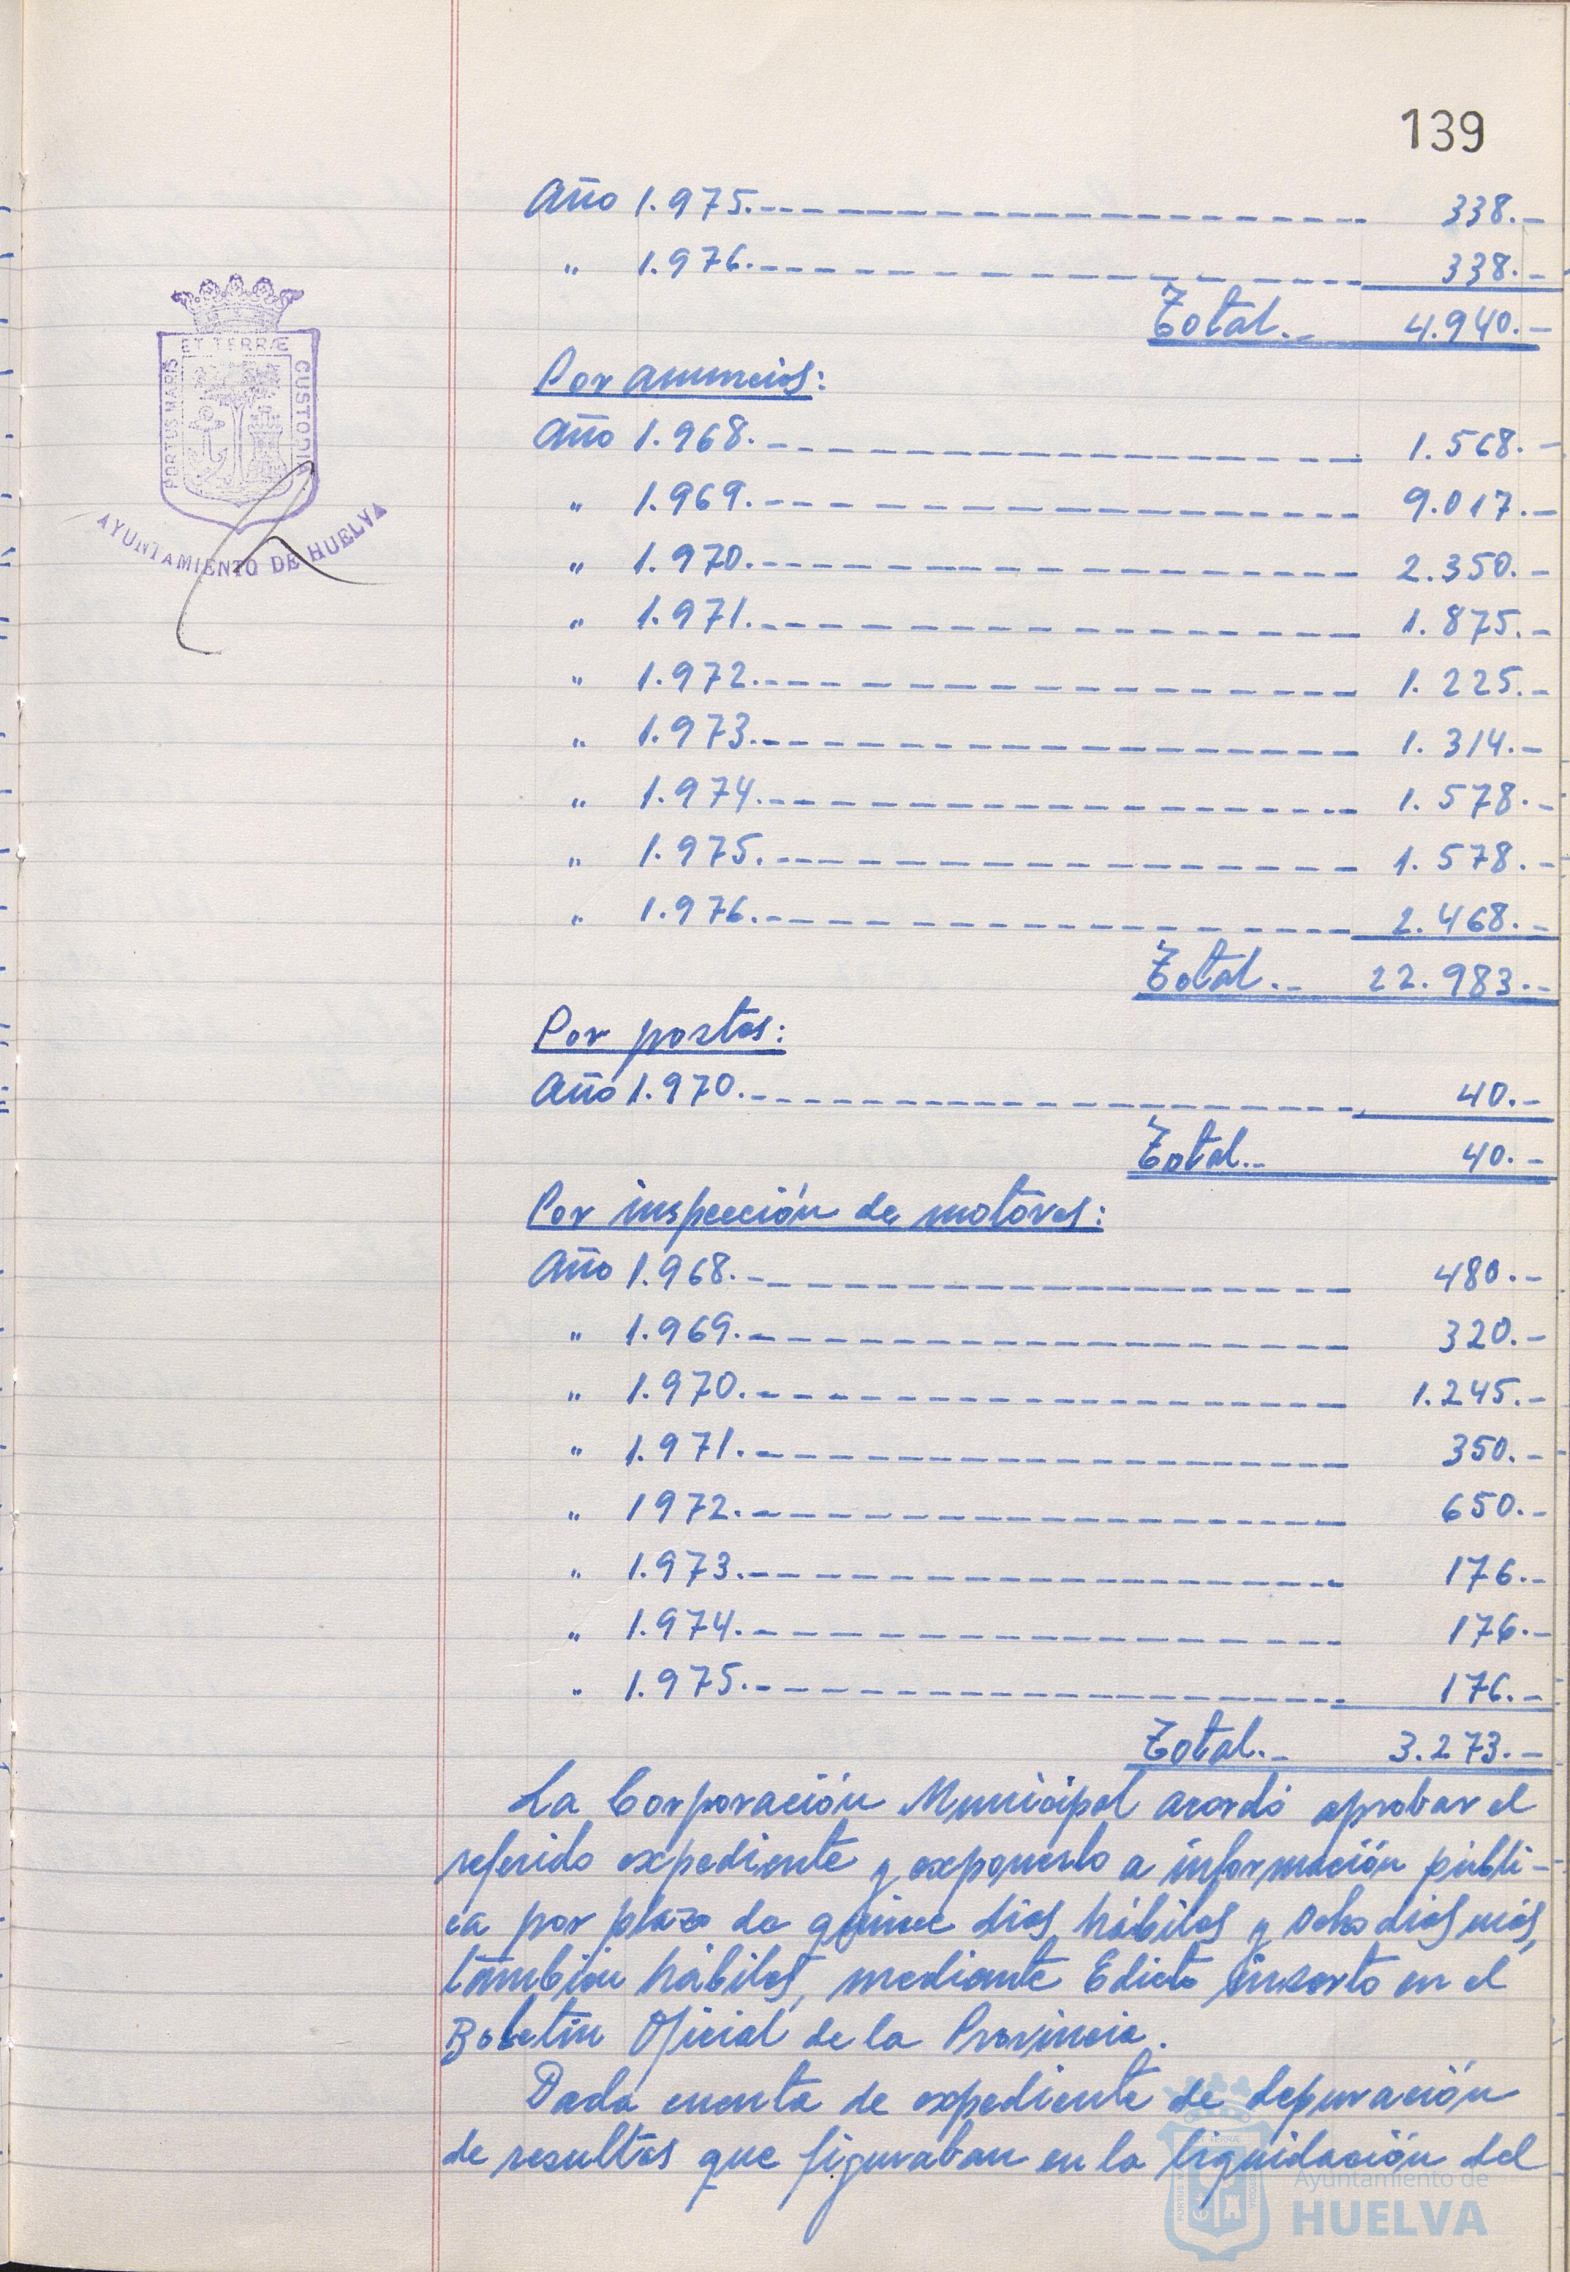 139
Año 1.975.- 338.-
" 1.976.- 338.-
Total.- 4.940.-
Por anuncios:
Año 1.968.- 1.568.-
" 1.969.- 9.017.-
" 1.970.- 2.350.-
" 1.971.- 1.875.-
" 1.972.- 1.225.-
" 1.973.- 1.314.-
" 1.974.- 1.578.-
" 1.975.- 1.578.-
" 1.976.- 2.468.-
Total.- 22.983.-
Por postes:
Año 1.970.- 40.-
Total.- 40.-
Por inspección de motores:
Año 1.968.- 480.-
" 1.969.- 320.-
" 1.970.- 1.245.-
" 1.971.- 350.-
" 1972.- 650.-
" 1.973.- 176.-
" 1.974.- 176.-
" 1.975.- 176.-
Total.- 3.273.-
La Corporación Municipal acordó aprobar el
referido expediente y exponerlo a información públi-
ca por plazo de quince días hábiles y ocho días más,
también hábiles, mediante Edicto inserto en el
Boletín Oficial de la Provincia.
Dada cuenta de expediente de depuración
de resultas que figuraban en la liquidación del
PORTUS MARIS
ET TERRÆ
CUSTODI
AYUNTAMIENTO DE HUELVA
Ayuntamiento de
HUELVA